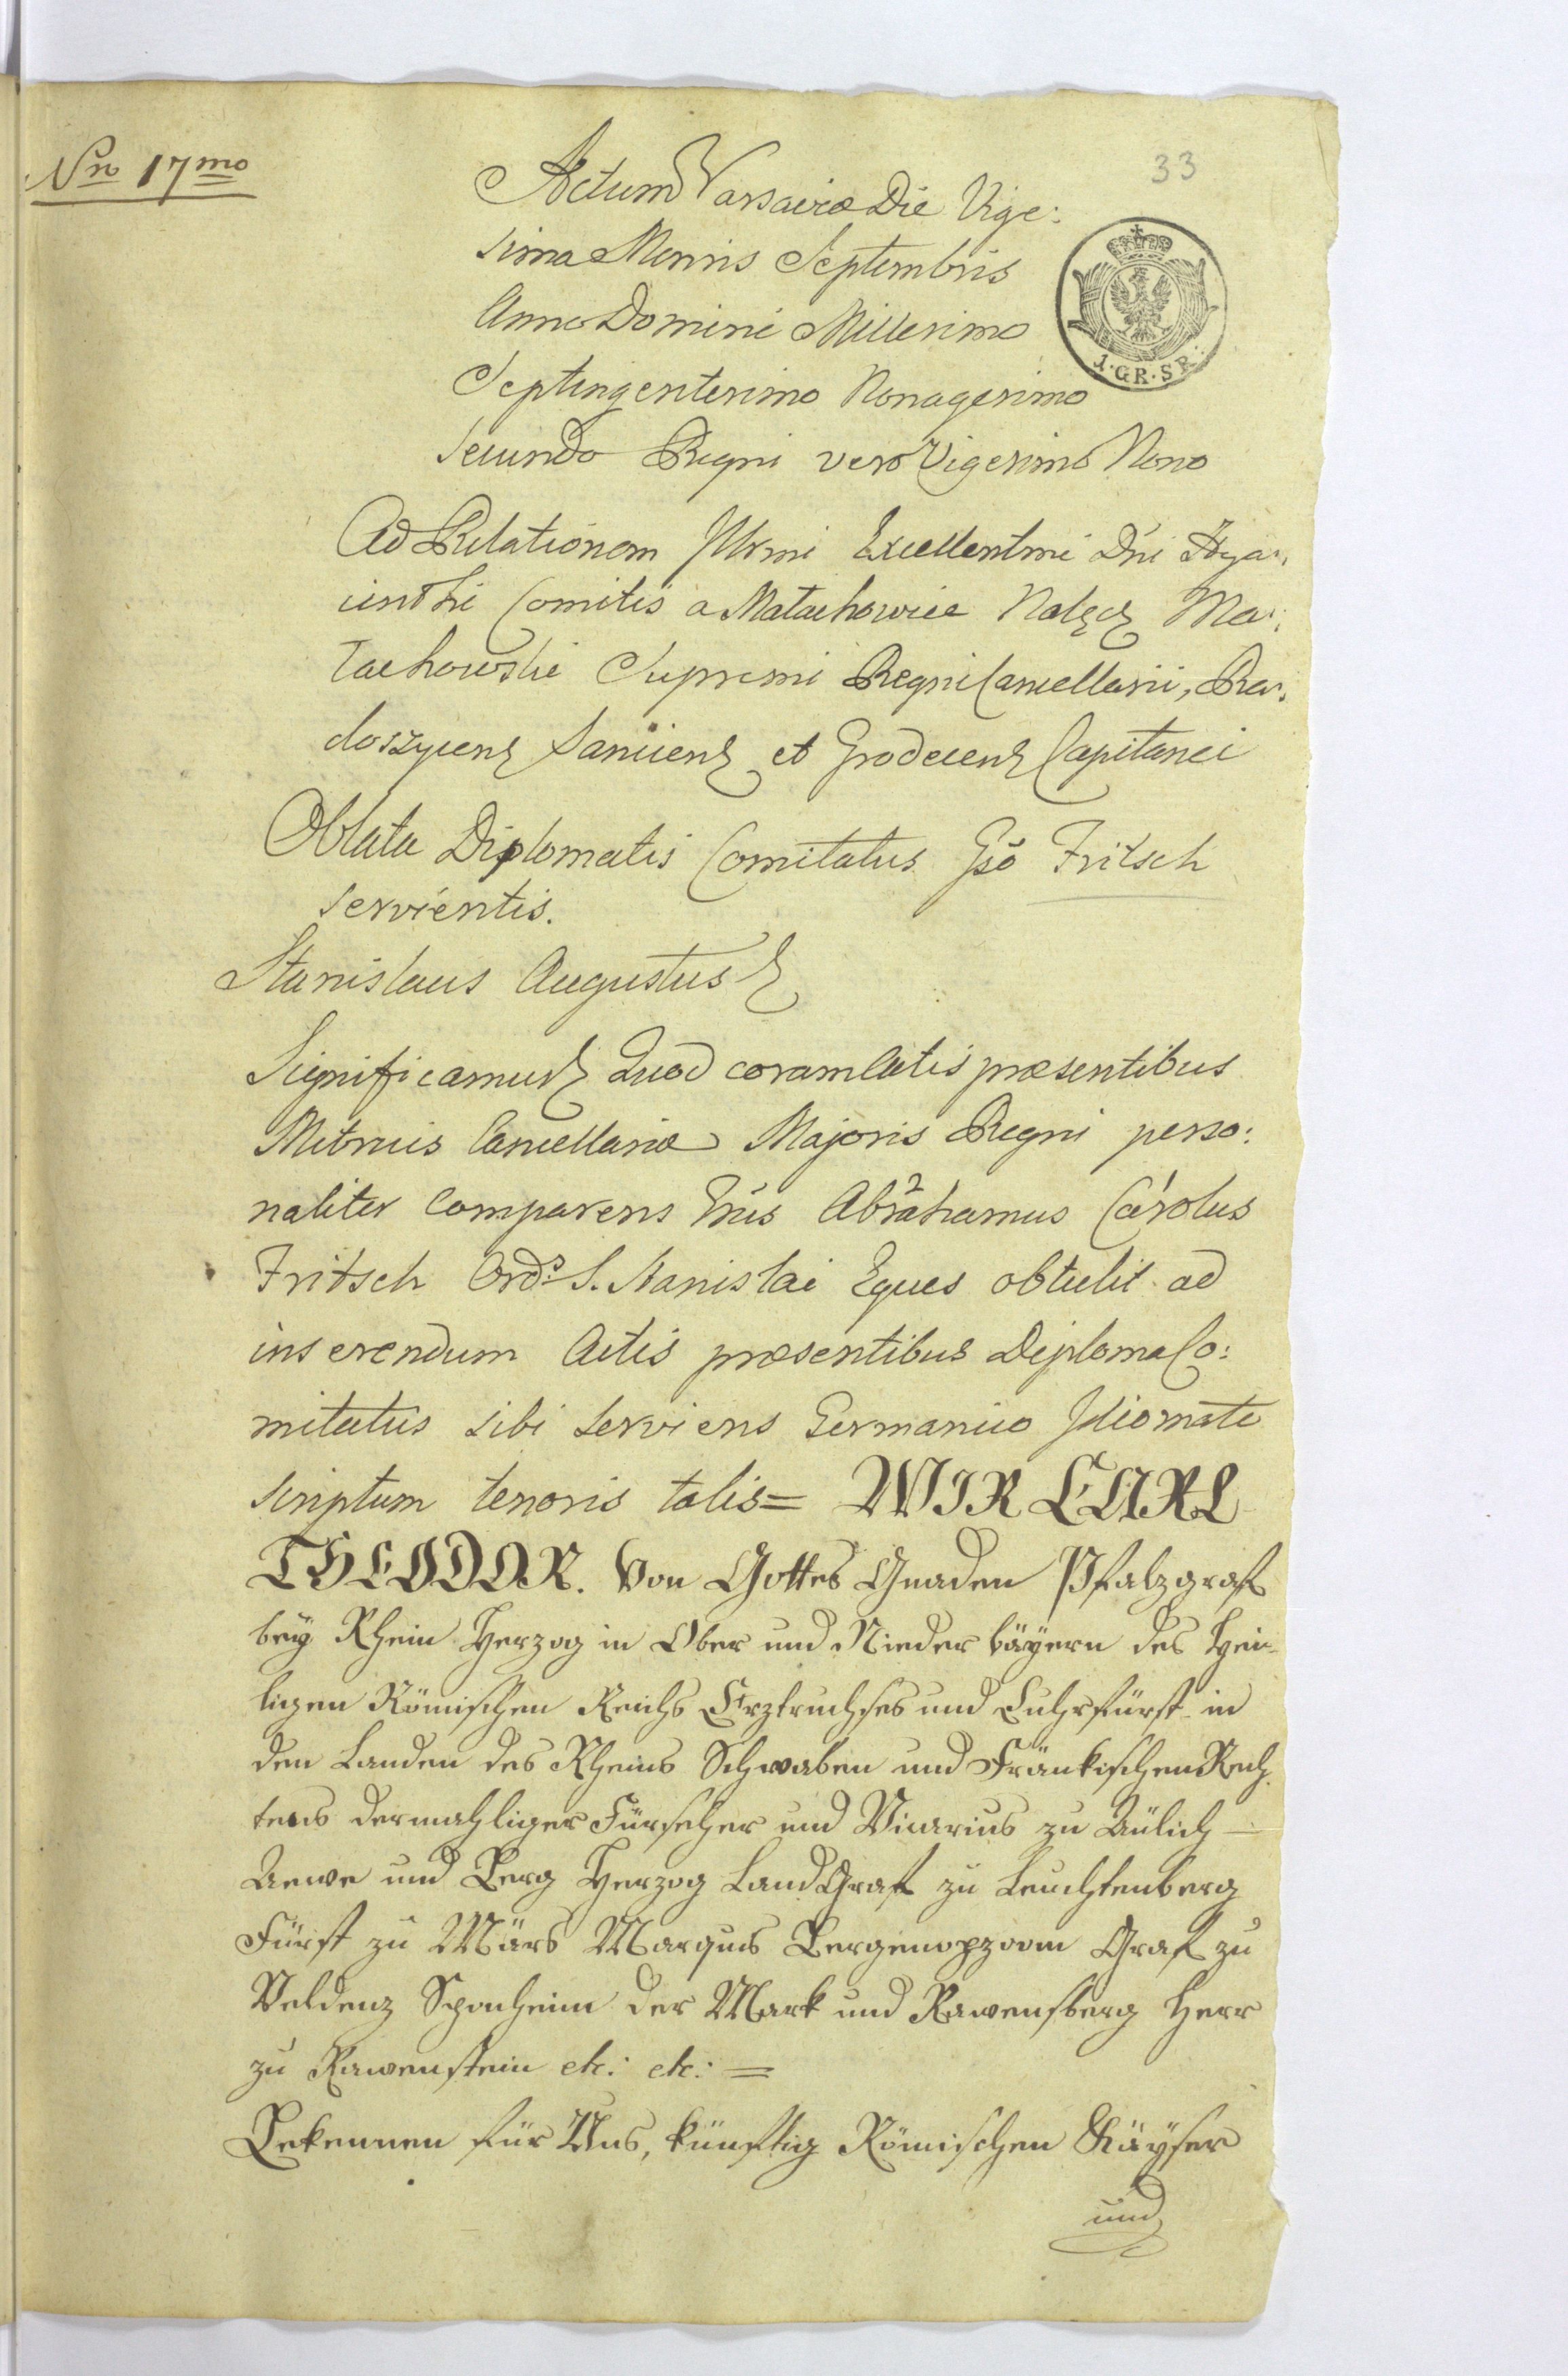 Nro 17mo
33
Actum Varsaviæ Die Vige:
sima Mensis Septembris
Anno Domini Millesimo
Septingentesimo Nonagesimo
Secundo Regni vero Vigesimo Nono
1·GR·SR·
Ad Relationem Illrmi Excellentmi Dni Hya:
cinthi Comitis a Małachowice Nałęcz Ma:
łachowski Supremi Regni Cancellarii, Ra:
doszycen Sanicen et Grodecen Capitanei
Oblata Diplomatis Comitatus Gso Fritsch
servientis.
Stanislaus Augustus
Significamus Quod coram Actis præsentibus
Metrices Cancellariæ Majoris Regni perso:
naliter Comparens Grus Abrahamus Carolus
Fritsch Ord: S. Stanislai Eques obtulit ad
inserendum Actis præsentibus Diploma Co:
mitatus sibi serviens Germanico Idiomate
scriptum tenoris talis= WIR CARL
THEODOR. Von Gottes Gnaden Pfalzgraf
bey Rhein Herzog in Ober und Nieder bäyern des Hei-
ligen Römischen Reichs Erztruchses und Cuhrfürst in
den Landen des Rheins Schwaben und Fränkischen Rech
tens dermahliger Fürseher und Vicarius zu Gülich
Clewe und Berg Herzog Land Graf zu Leuchtenberg
Fürst zu Mörs Marquis Bergenopzoom Graf zu
Veldenz Sponheim der Mark und Rawensberg Herr
zu Rawenstein etc: etc: =
Bekennen für Uns, künftig Römischen Käyser
und